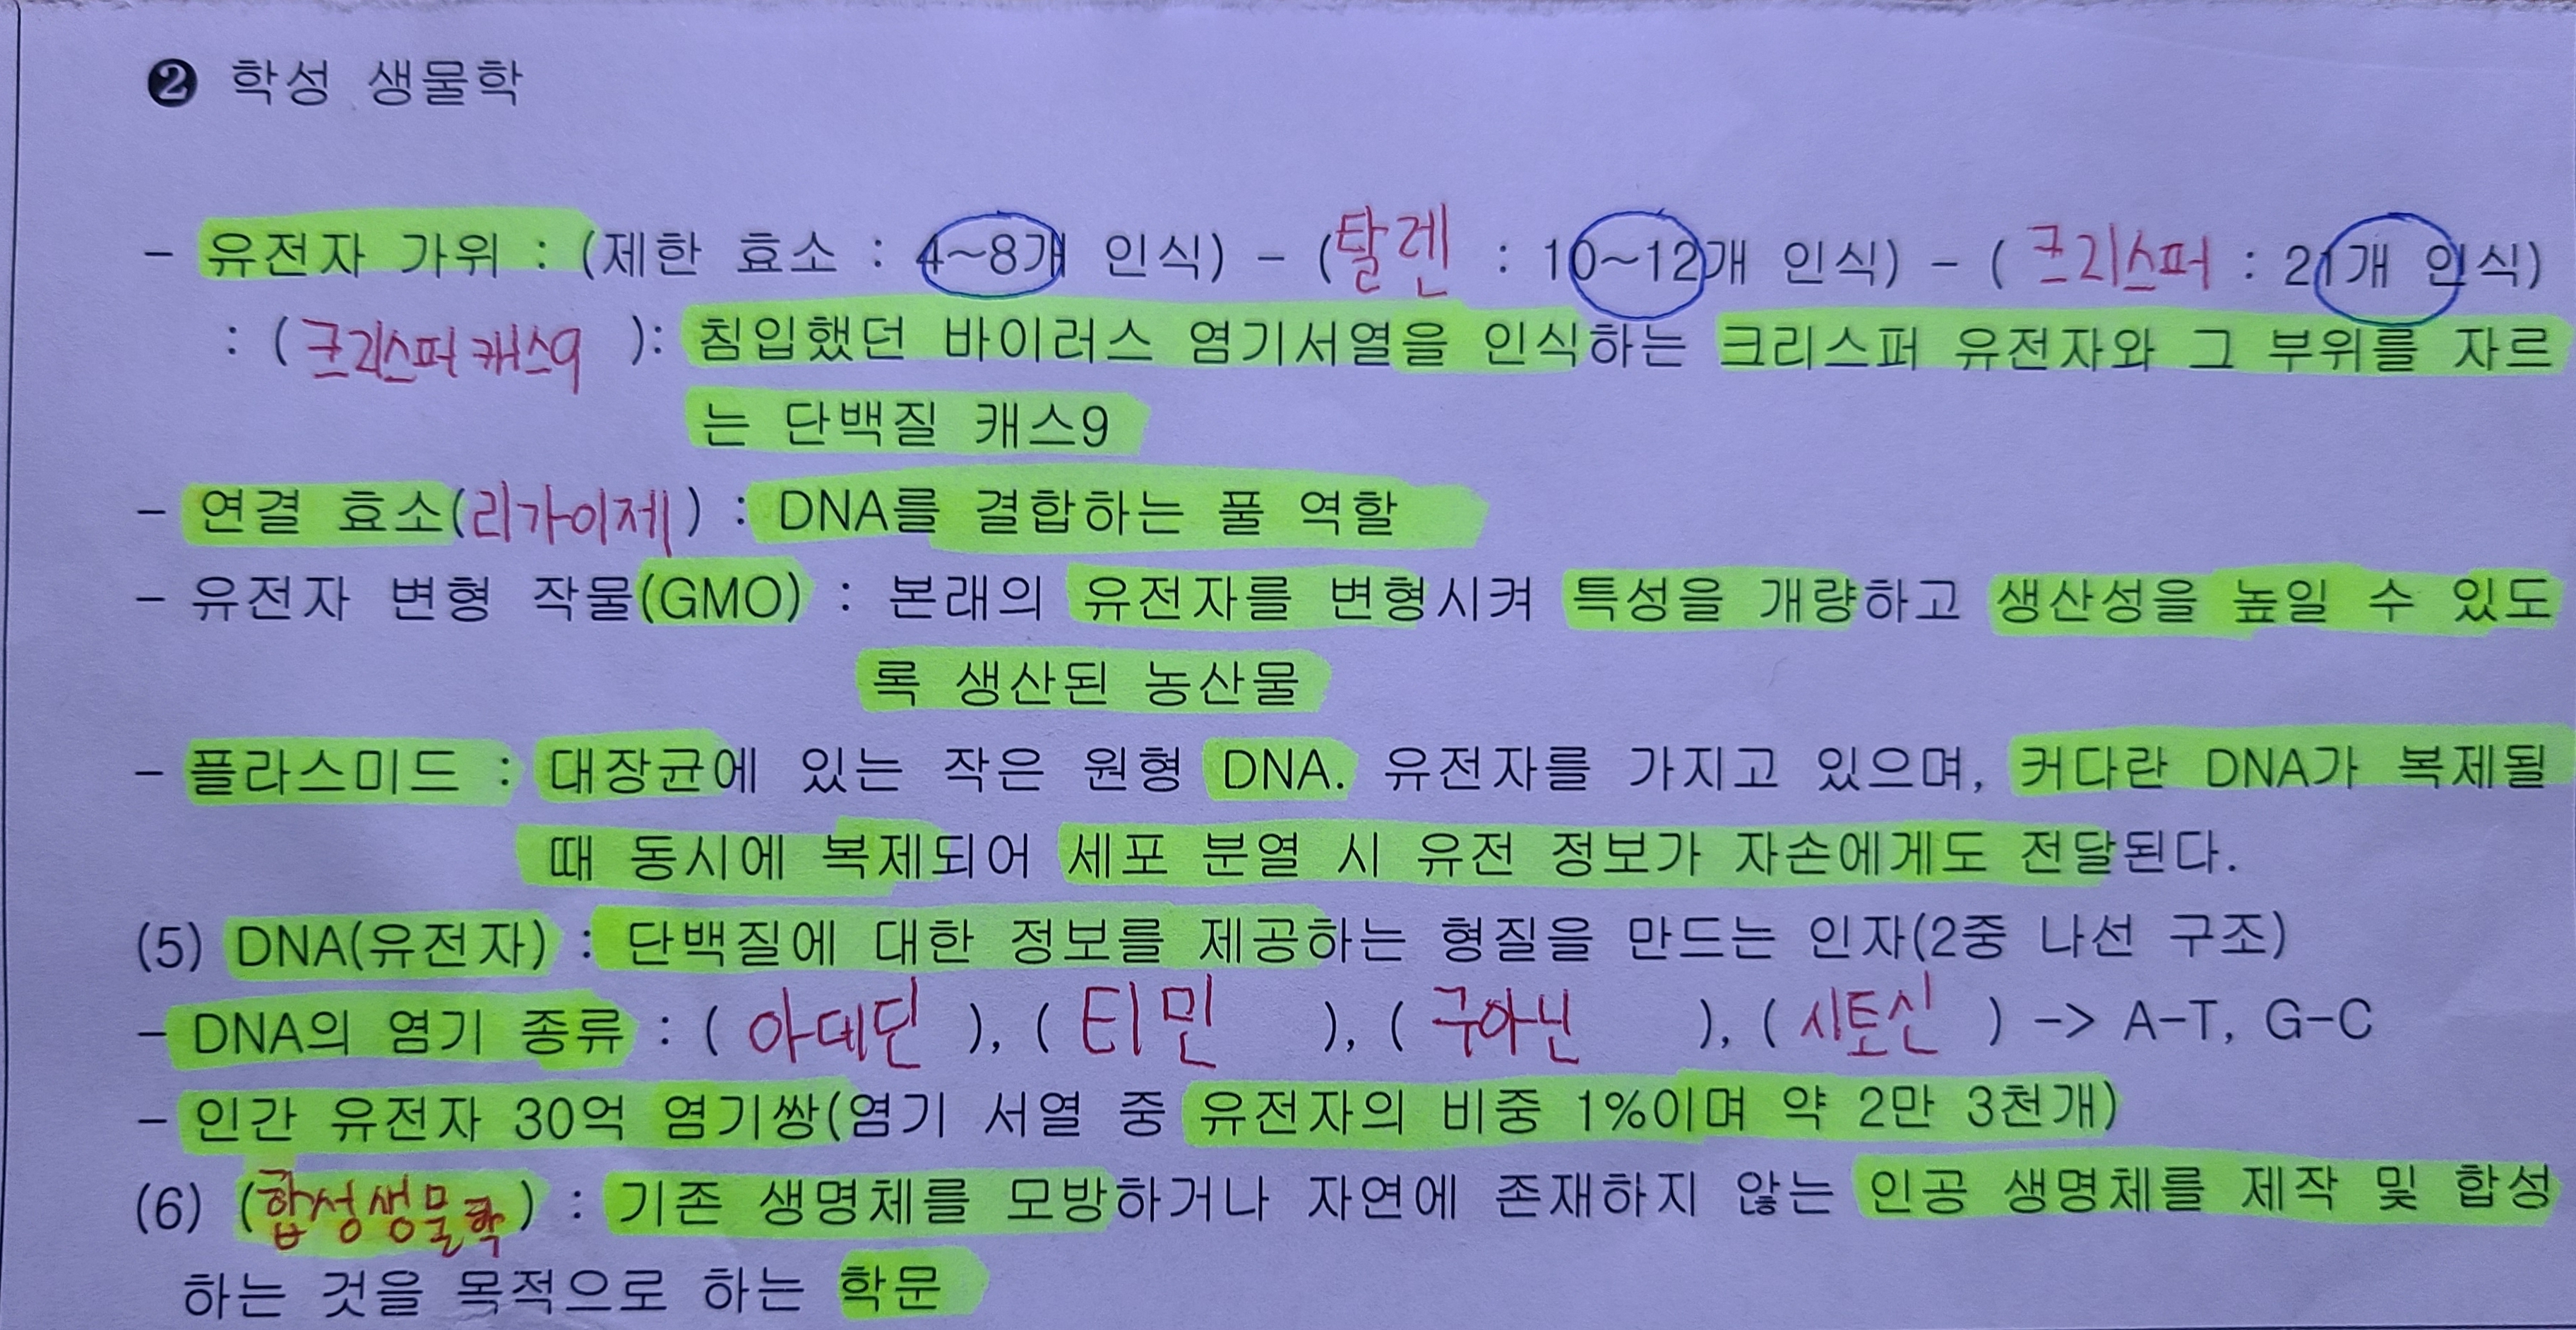 ❷ 학성 생물학
- 유전자 가위 : (제한 효소 : 4~8개 인식) - (탈렌 : 10~12개 인식) - ( 크리스퍼 : 21개 인식)
: ( 크리스퍼 캐스9 ): 침입했던 바이러스 염기서열을 인식하는 크리스퍼 유전자와 그 부위를 자르
는 단백질 캐스9
- 연결 효소(리가이제) : DNA를 결합하는 풀 역할
- 유전자 변형 작물(GMO) : 본래의 유전자를 변형시켜 특성을 개량하고 생산성을 높일 수 있도
록 생산된 농산물
- 플라스미드 : 대장균에 있는 작은 원형 DNA. 유전자를 가지고 있으며, 커다란 DNA가 복제될
때 동시에 복제되어 세포 분열 시 유전 정보가 자손에게도 전달된다.
(5) DNA(유전자) : 단백질에 대한 정보를 제공하는 형질을 만드는 인자(2중 나선 구조)
- DNA의 염기 종류 : ( 아데닌 ), ( 티민 ), ( 구아닌 ), ( 시토신 ) -> A-T, G-C
- 인간 유전자 30억 염기쌍(염기 서열 중 유전자의 비중 1%이며 약 2만 3천개)
(6) (합성생물학) : 기존 생명체를 모방하거나 자연에 존재하지 않는 인공 생명체를 제작 및 합성
하는 것을 목적으로 하는 학문